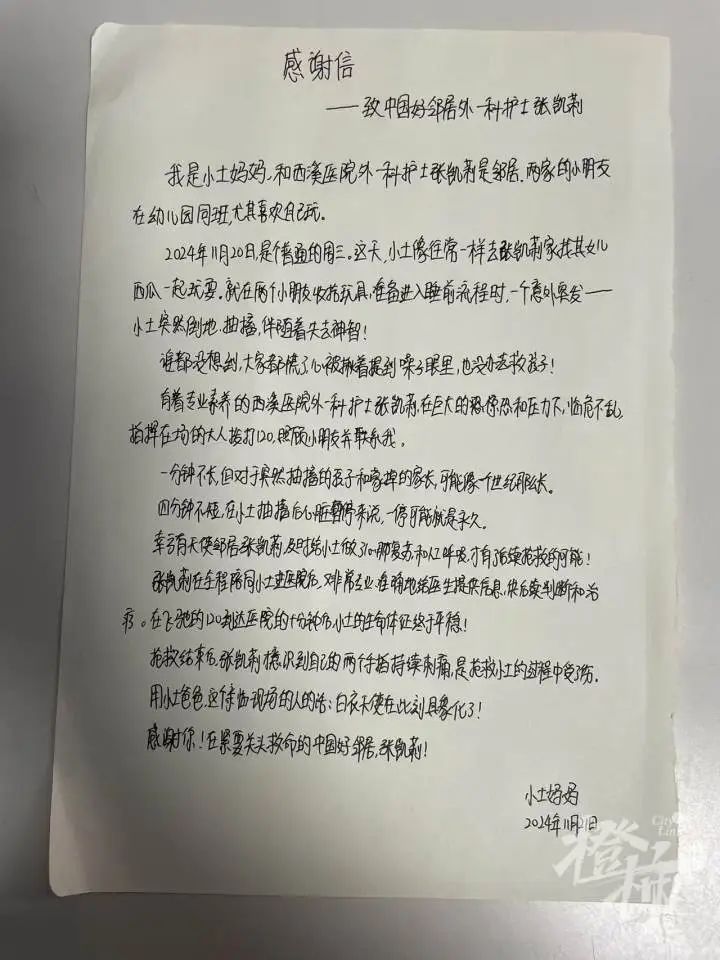 感谢信
——致中国好邻居外一科护士张凯莉
我是小土妈妈,和西溪医院外一科护士张凯莉是邻居。两家的小朋友
在幼儿园同班,尤其喜欢自己玩。
2024年11月20日,是个普通的周三。这天,小土像往常一样去张凯莉家找其女儿
西瓜一起玩耍。就在两个小朋友收拾玩具,准备进入睡前流程时,一个意外突发——
小土突然倒地、抽搐,伴随着失去神智!
谁都没想到,大家都慌了,心被揪着提到嗓子眼里,也没办法救孩子!
有着专业素养的西溪医院外一科护士张凯莉,在巨大的恐和压力下,临危不乱,
指挥在场的大人拨打120,照顾小朋友并联系我。
一分钟不长,但对于突然抽搐的孩子和家的家长,可能像一个世纪那么长。
四分钟不短,在小土抽搐后心脏暂停来说,一停可能就是永久。
幸亏有天使邻居张凯莉,及时给小土做了心肺复苏和人工呼吸,才有了后续抢救的可能!
张凯莉在全程陪同小土进医院后,又非常专业、准确地给医生提供信息,供后续判断和治
疗。在飞驰的120到达医院的十分钟后,小土的生命体征终于平稳!
抢救结束后,张凯莉才意识到自己的两个手指持续刺痛,是抢救小土的过程中受了伤。
用小土爸爸,这个亲临现场的人的话:白衣天使在此刻具象化了!
感谢你!在紧要关头救命的中国好邻居,张凯莉!
小土妈妈
2024年11月21日
City
Link
橙柿